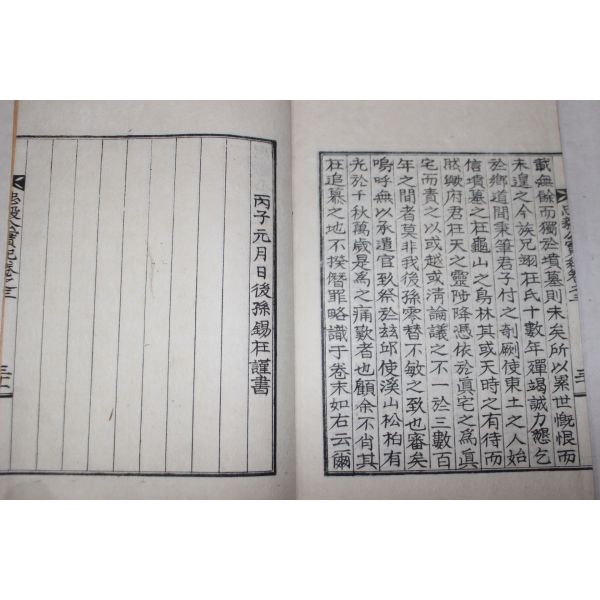 忠毅公實記卷之三
載無餘而獨於墳墓則未矣所以累世慨恨而
未遑之今族兄翊在氏十數年殫竭誠力懇乞
於鄉道間秉筆君子付之剞劂使東土之人始
信墳墓之在龜山之烏林其或天時之有待而
然歟府君在天之靈陟降憑依於眞宅之爲眞
宅而責之以或越或清論議之不一於三數百
年之間者莫非我後孫零替不敏之致也審矣
嗚呼無以承遣官致祭於玆邱使溪山松柏有
光於千秋萬歲是爲之痛歎者也顧余不肖其
在追慕之地不揆僭罪略識于卷末如右云爾
丙子元月日後孫錫在謹書
忠毅公實記卷之三